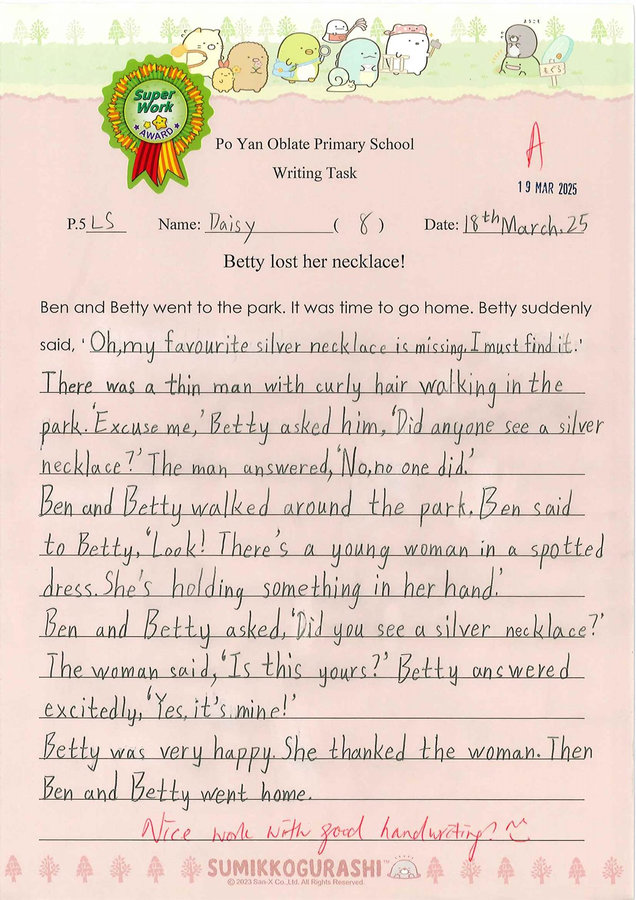 Super
Work
AWARD
Po Yan Oblate Primary School
Writing Task
A
19 MAR 2025
P.5 LS Name: Daisy ( 8 ) Date: 18th March, 25
Betty lost her necklace!
Ben and Betty went to the park. It was time to go home. Betty suddenly
said, 'Oh, my favourite silver necklace is missing. I must find it.'
There was a thin man with curly hair walking in the
park. 'Excuse me,' Betty asked him, 'Did anyone see a silver
necklace?' The man answered, 'No, no one did.'
Ben and Betty walked around the park. Ben said
to Betty, 'Look! There's a young woman in a spotted
dress. She's holding something in her hand.'
Ben and Betty asked, 'Did you see a silver necklace?'
The woman said, 'Is this yours?' Betty answered
excitedly, 'Yes, it's mine!'
Betty was very happy. She thanked the woman. Then
Ben and Betty went home.
Nice work with good handwriting!
SUMIKKOGURASHI™
© 2023 San-X Co.,Ltd. All Rights Reserved.